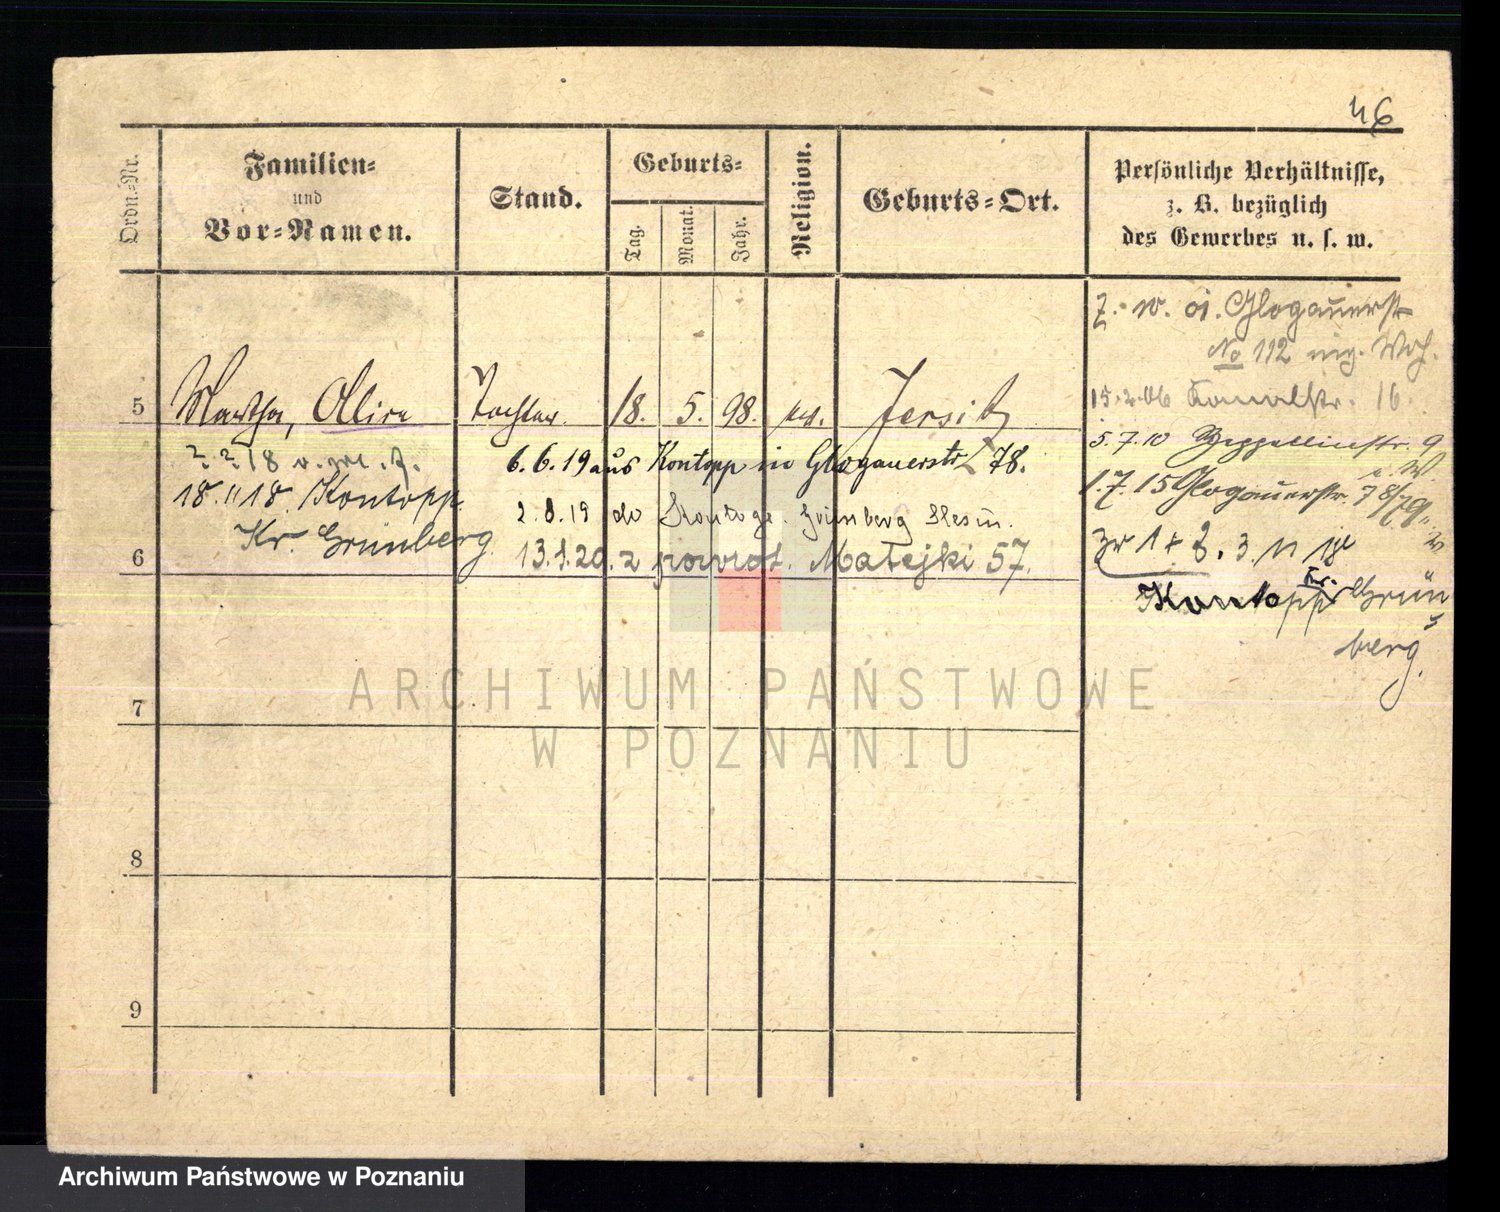 46
Ordn.-Nr.
Familien-
und
Vor-Namen.
Stand.
Geburts-
Tag.
Monat.
Jahr.
Religion.
Geburts-Ort.
Persönliche Verhältnisse,
z. B. bezüglich
des Gewerbes u. s. w.
Glogauerstr
No 112 Woh.
5 Martha, Tochter. 18. 5. 98. Jersitz
15.2.06 Kanalstr. 16.
5.7.10 Zeppelinstr. 9
2.2.18
6.6.19 aus Kontopp in Glogauerstr 78.
1.7.15 Glogauerstr. 78/79
18.11.18. Kontopp
Kr. Grünberg
2.8.19 do
13.1.20. z powrot. Matejki 57.
3. 11 18
Kontopp Kr. Grün-
berg.
6
7
8
9
ARCHIWUM PAŃSTWOWE
W POZNANIU
Archiwum Państwowe w Poznaniu